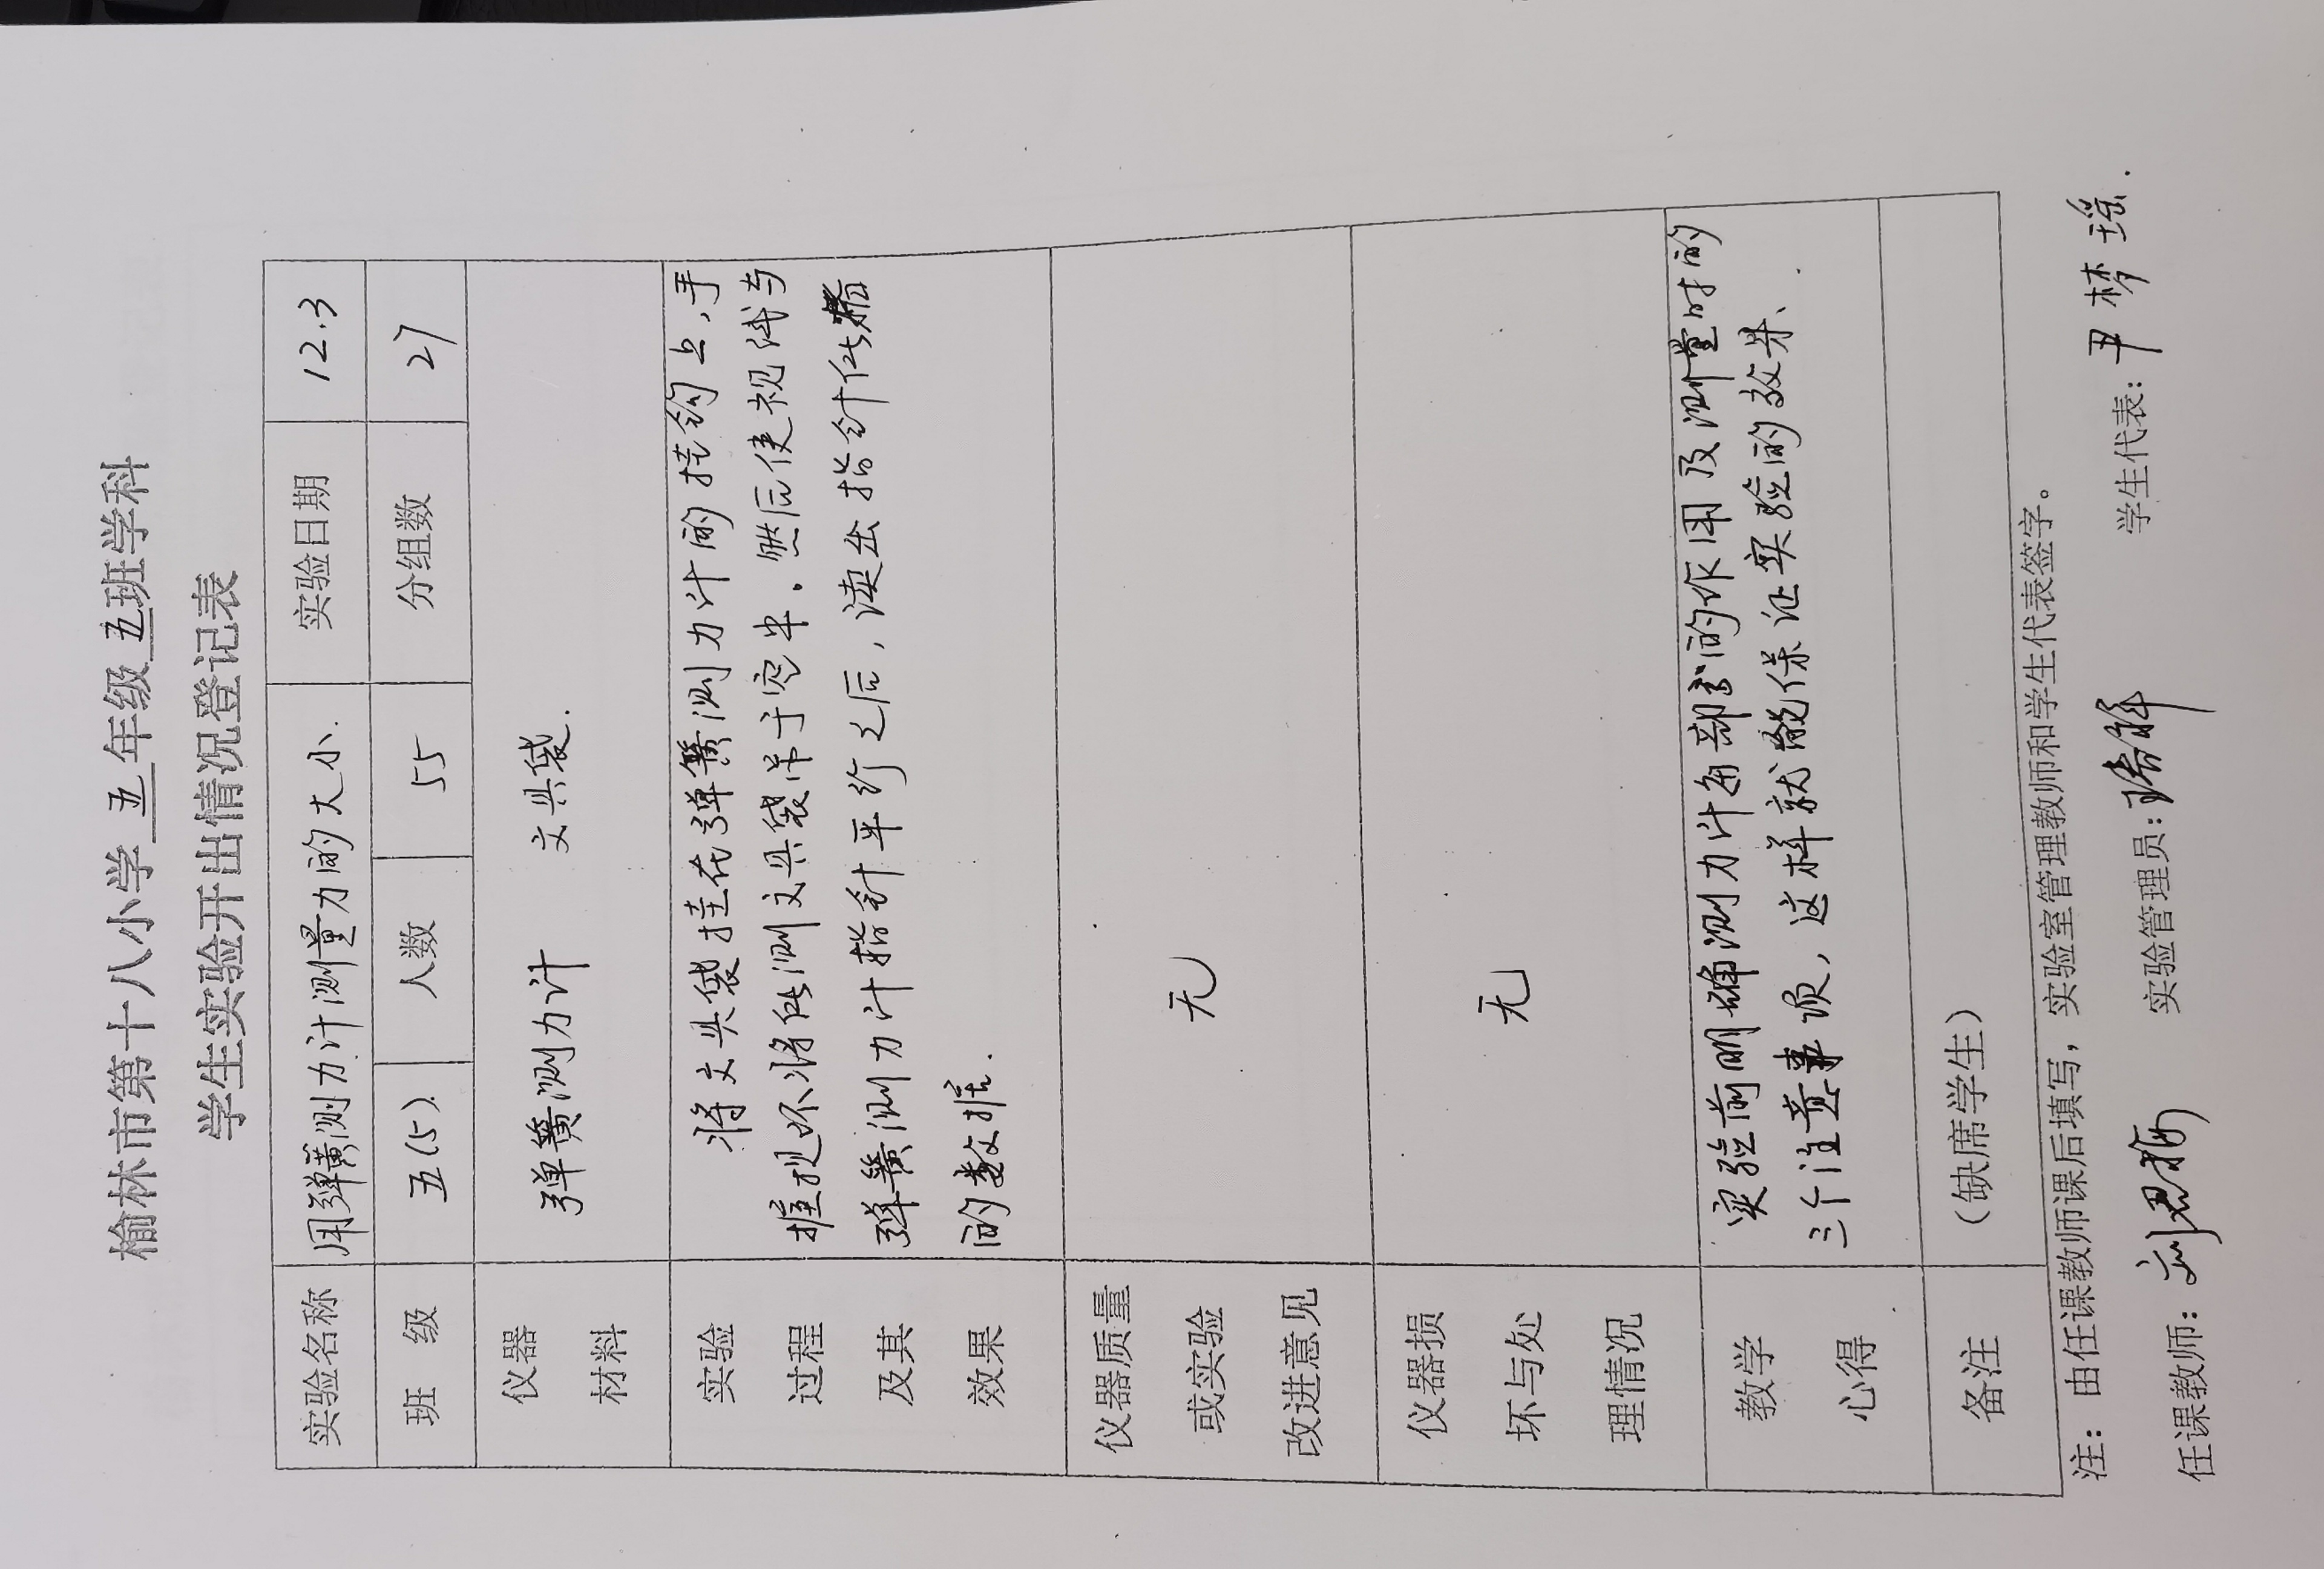 榆林市第十八小学五年级五班学科
学生实验开出情况登记表
实验名称 用弹簧测力计测量力的大小. 实验日期 12.3
班 级 五(5). 人数 55 分组数 27
仪器 弹簧测力计 文具袋.
材料
实验 将文具袋挂在弹簧测力计的挂钩上,手
过程 握提环将所测文具袋吊于空中.然后使视线与
及其 弹簧测力计指针平行之后,读出指针所指
效果 的数据.
仪器质量
或实验 无
改进意见
仪器损
坏与处 无
理情况
教学 实验前明确测力计每部分的作用及测量时的
心得 三个注意事项,这样就能保证实验的效果.
备注 (缺席学生)
注:由任课教师课后填写,实验室管理教师和学生代表签字。
任课教师: 刘君梅 实验管理员: 学生代表:尹梦瑶.